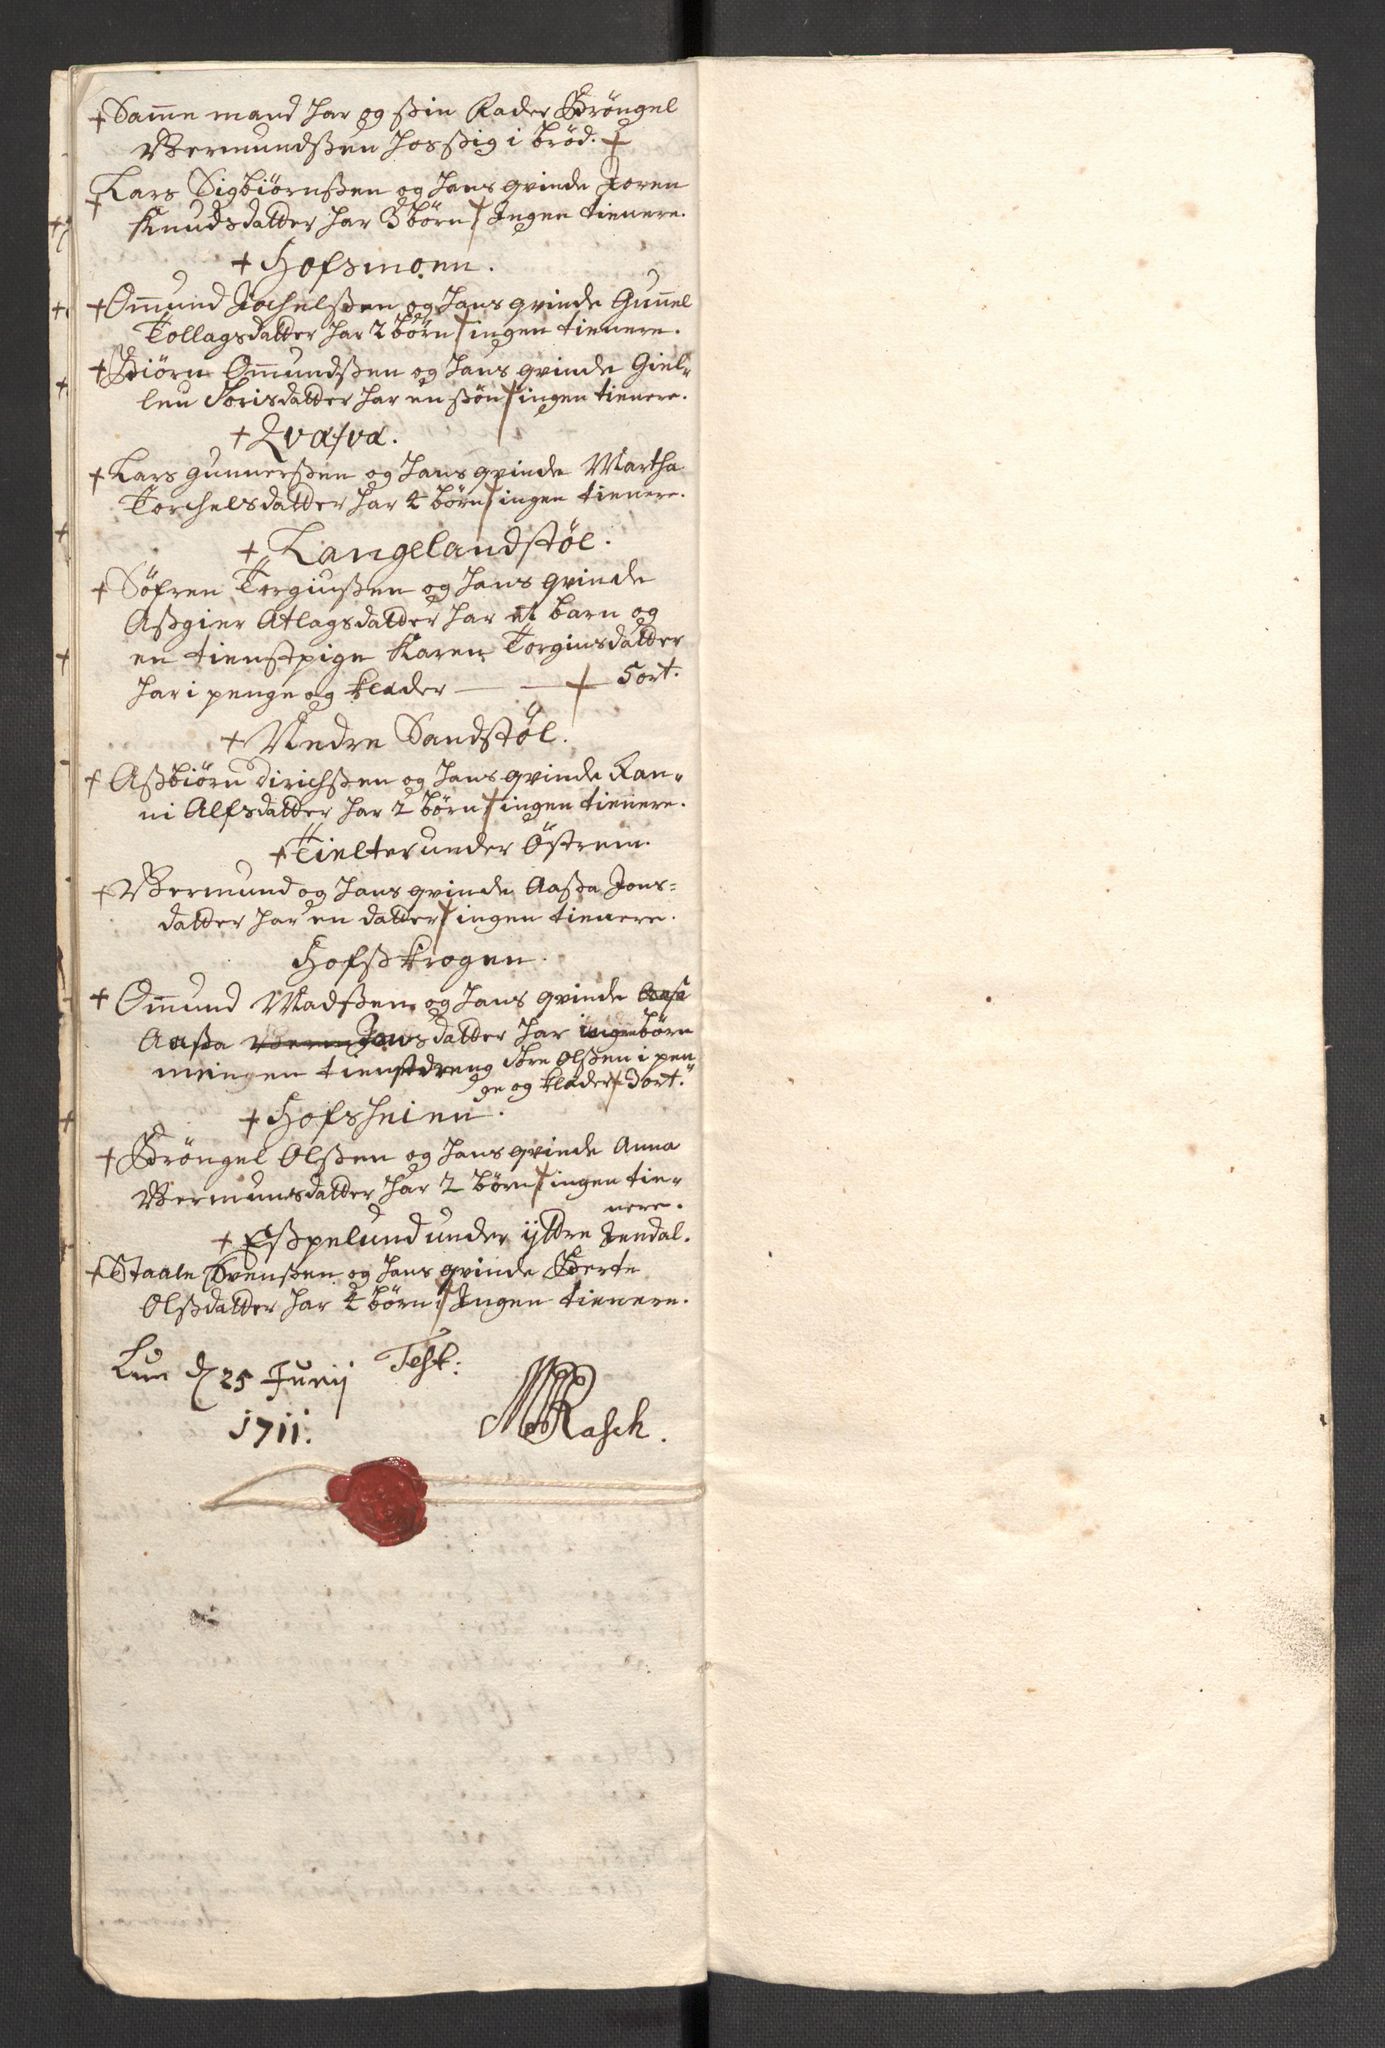 + Sam̄e mand har og ßin Fader Bröngel
Wermundßen hos ßig i bröd. +
+ Lars Sigbiörnßen og hans qvinde Joren
Knudsdatter har 3 börn + Ingen tienere.
+ Hofsmoen.
+ Om̄und Jochelßen og hans qvinde Gun̄el
Tollagsdatter har 2 börn + ingen tienere.
+ Biörn Om̄undßen og hans qvinde Giel-
len Torisdatter har en ßön + ingen tienere.
+ Qvasva.
+ Lars gunnerßen og hans qvinde Martha
Torchelsdatter har 4 börn + ingen tienere.
+ Langelandstöl.
+ Söfren Torgiusßen og hans qvinde
Aßgier Atlagsdatter har et barn og
en tienstpige Karen Torgiusdatter
har i penge og klæder — — + 5 ort.
+ Nedre Sandstöl.
+ Aßbiörn Dirichßen og hans qvinde Ran-
ni Alfsdatter har 2 börn + ingen tienere.
+ Tielter under Östrem.
+ Wermund og hans qvinde Aaßa Jons-
datter har en datter + ingen tienere.
Hofßkrogen.
+ Om̄und Madßen og hans qvinde Aasa
Aaßa Jonsdatter har ingen börn
men en tienstdreng Tore Olßen i pen
ge og klæder + 3 ort.
+ Hofsheien.
+ Bröngel Olßen og hans qvinde Anna
Wermunsdatter har 2 börn + ingen tie-
nere.
+ Eßpelund under ÿttre Jendal.
+ Staale Svenßen og hans qvinde Berte
Olßdatter har 4 börn + Ingen tienere.
Lun d 25 Junij Test:
1711. Rasch.